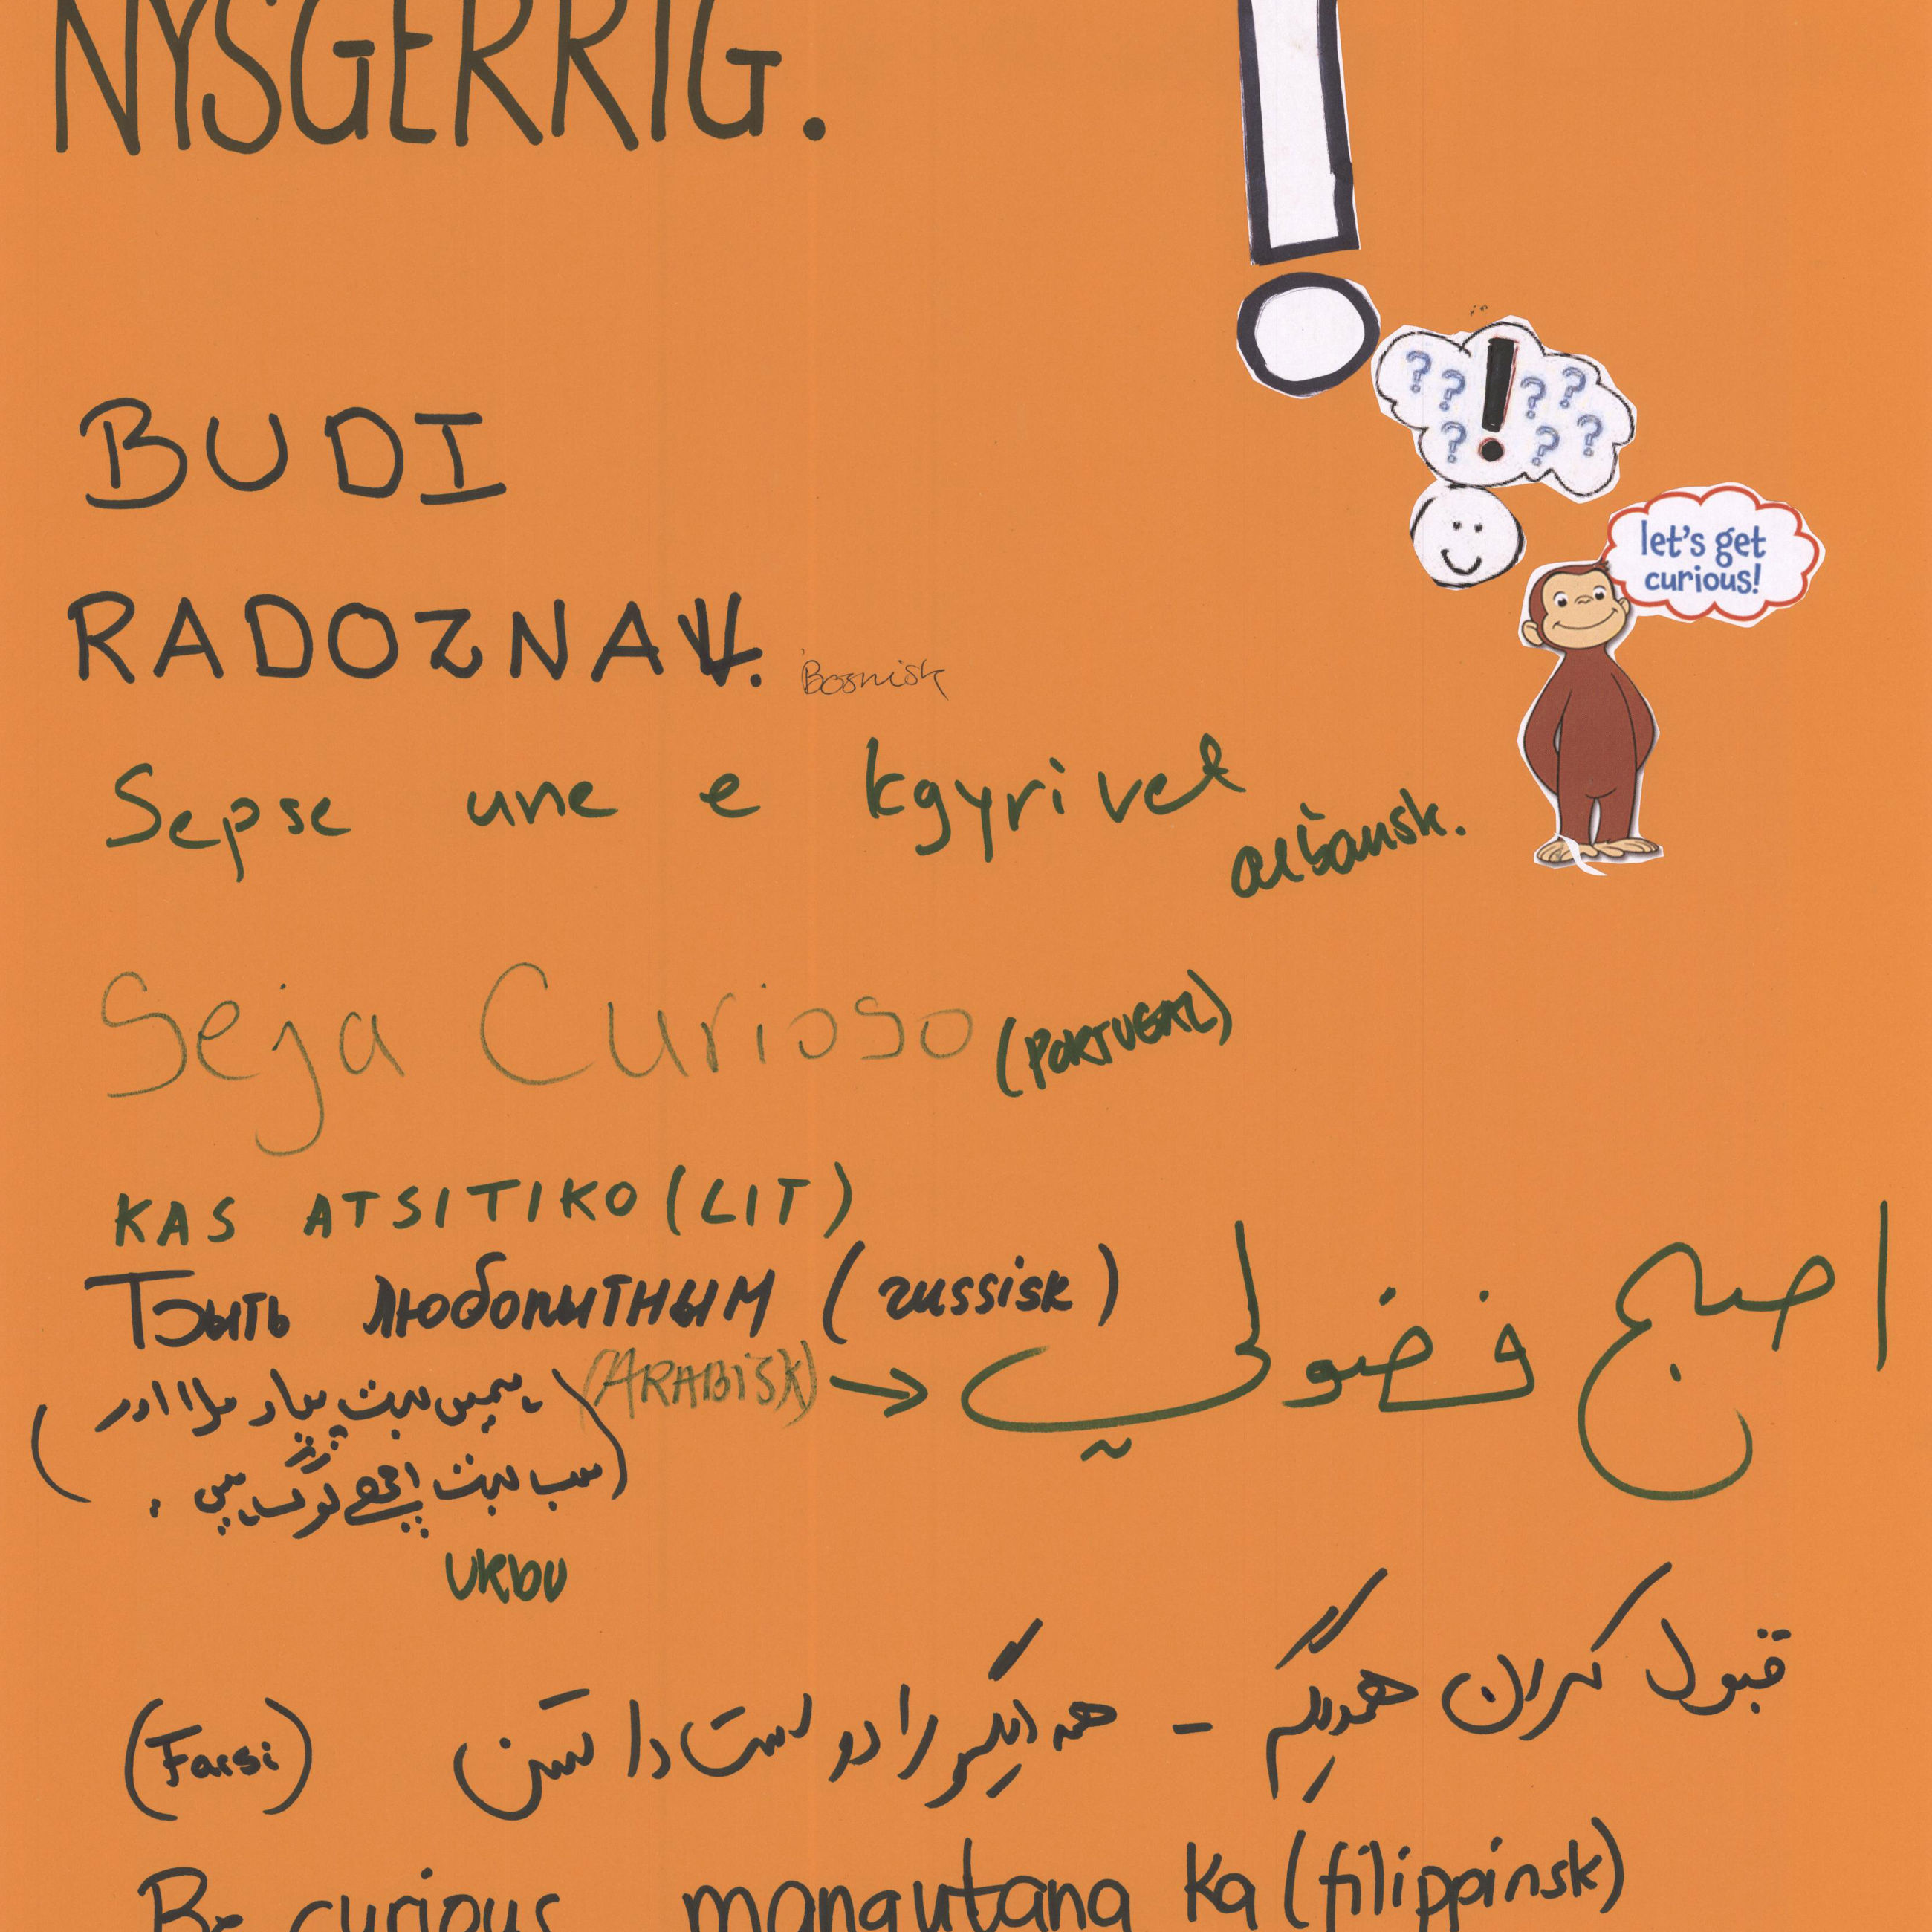 NYSGERRIG.
BUDI
let's get
curious!
RADOZNAV.
Bosnisk
Sepse une e kgyrivet
albansk.
Seja Curioso (PORTUGAL)
KAS ATSITIKO (LIT)
Быть любопитным (russisk)
اصبح فضولي
(ARABISK)
سب بہت اچھے لوگ ہیں
URDU
قبول کردن همدیگر - همدیگر را دوست داشتن
(Farsi)
Be curious mangutang ka (filippinsk)